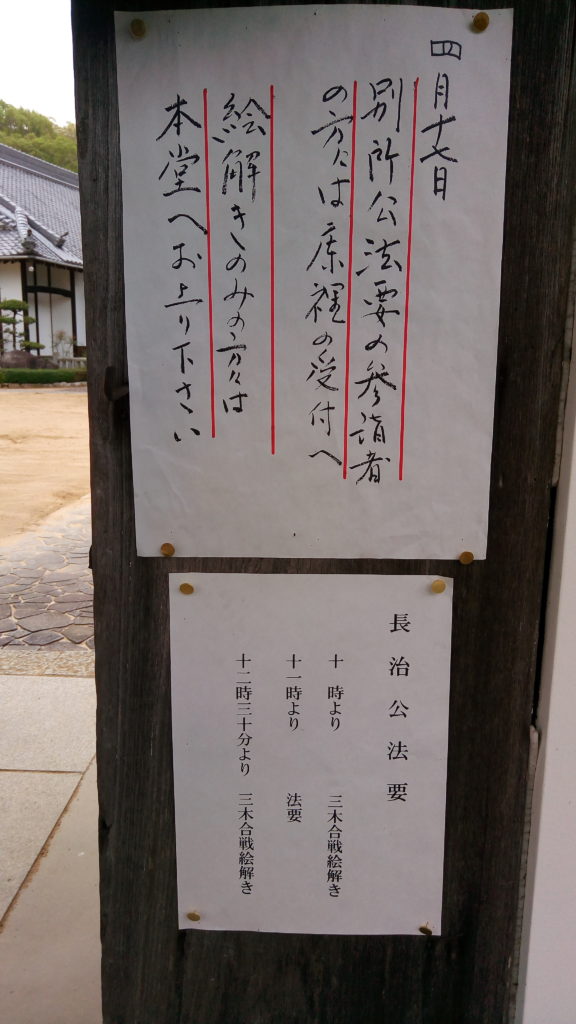 四月十七日
別所公法要の参詣者
の方々は庫裡の受付へ
絵解きのみの方々は
本堂へお上り下さい
長治公法要
十時より 三木合戦絵解き
十一時より 法要
十二時三十分より 三木合戦絵解き